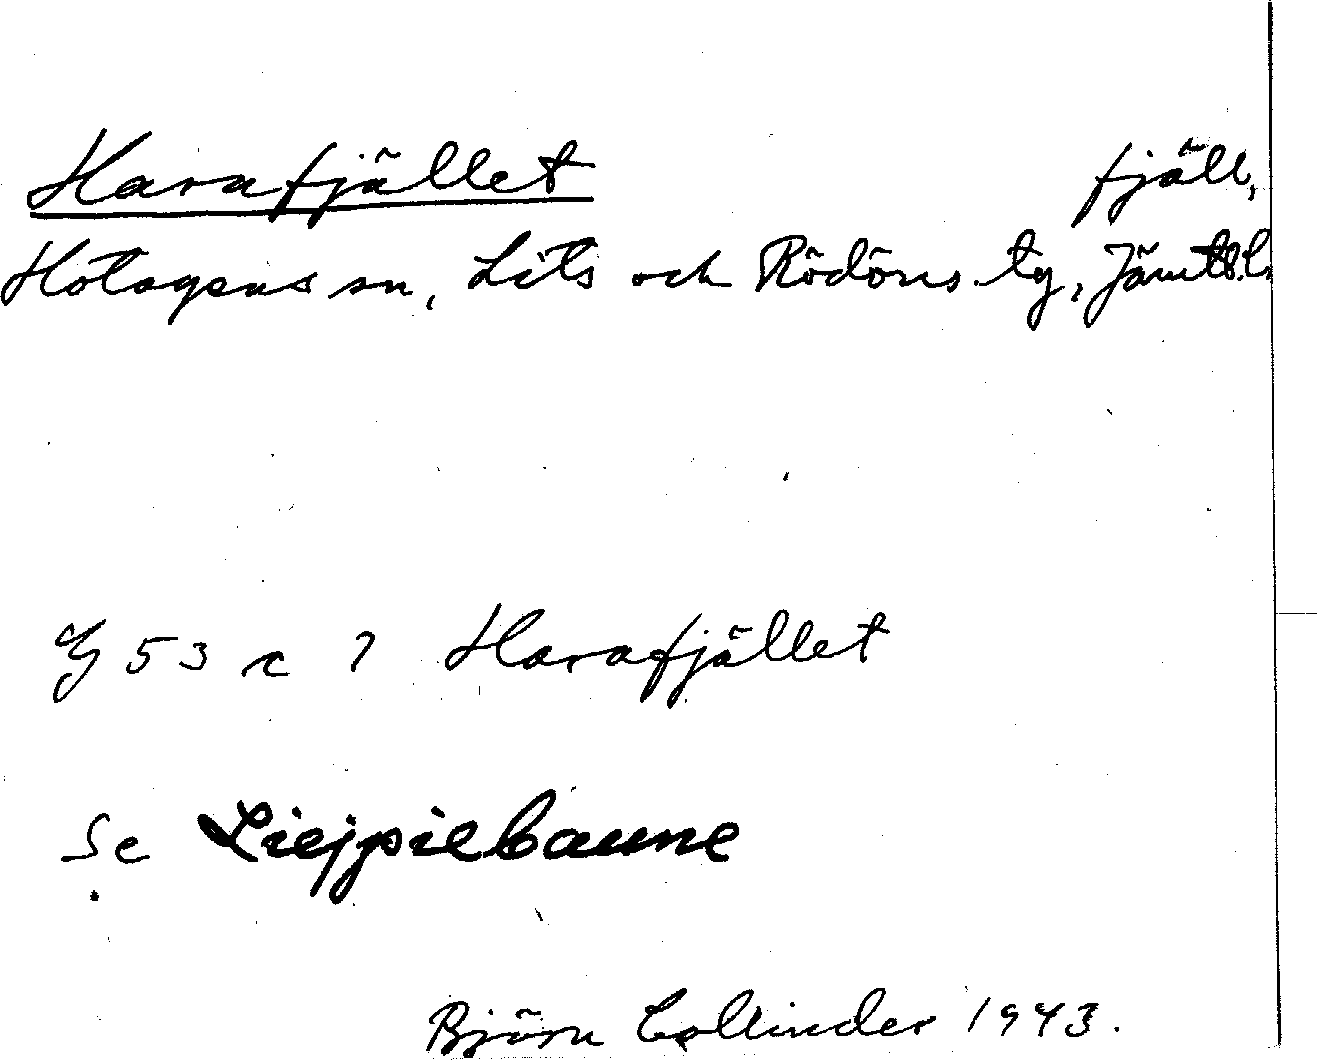 Harafjället fjäll,
Hotagens sn, Lits och Rödöns tg, Jämtl.l.
G 53 c ? Harafjället
Se Liejpiebaune
Björn Collinder 1943.